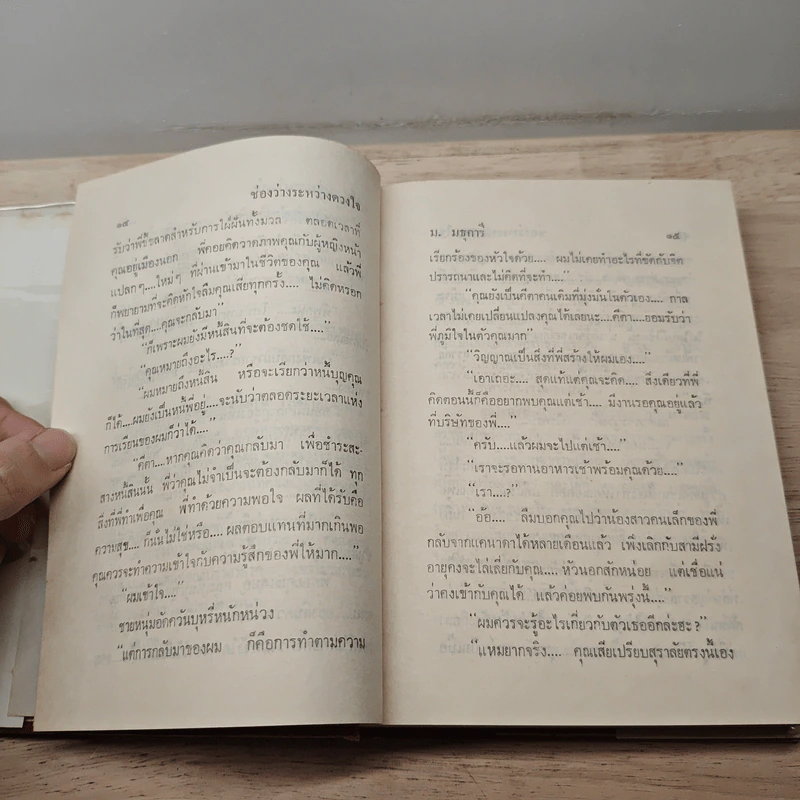 ช่องว่างระหว่างดวงใจ
๑๔
รับว่าพี่ขี้ขลาดสำหรับการใฝ่ฝันทั้งมวล ตลอดเวลาที่
คุณอยู่เมืองนอก พี่คอยคิดวาดภาพคุณกับผู้หญิงหน้า
แปลกๆ....ใหม่ๆ ที่ผ่านเข้ามาในชีวิตของคุณ แล้วพี่
ก็พยายามที่จะคิดหักใจลืมคุณเสียทุกครั้ง.... ไม่คิดหรอก
ว่าในที่สุด....คุณจะกลับมา”
“ก็เพราะผมยังมีหนี้สินที่จะต้องชดใช้....”
“คุณหมายถึงอะไร....?”
“ผมหมายถึงหนี้สิน หรือจะเรียกว่าหนี้บุญคุณ
ก็ได้....ผมยังเป็นหนี้พี่อยู่....จะนับว่าตลอดระยะเวลาแห่ง
การเรียนของผมก็ว่าได้....”
“คีตา....หากคุณคิดว่าคุณกลับมา เพื่อชำระสะ-
สางหนี้สินนั้น พี่ว่าคุณไม่จำเป็นจะต้องกลับมาก็ได้ ทุก
สิ่งที่พี่ทำเพื่อคุณ พี่ทำด้วยความพอใจ ผลที่ได้รับคือ
ความสุข.... ก็นั่นไม่ใช่หรือ.... ผลตอบแทนที่มากเกินพอ
คุณควรจะทำความเข้าใจกับความรู้สึกของพี่ให้มาก....”
“ผมเข้าใจ....”
ชายหนุ่มอัดควันบุหรี่หนักหน่วง
“แต่การกลับมาของผม ก็คือการทำตามความ
ม. มธุการี
๑๕
เรียกร้องของหัวใจด้วย.... ผมไม่เคยทำอะไรที่ขัดกับจิต
ปรารถนาและไม่คิดที่จะทำ....”
“คุณยังเป็นคีตาคนเดิมที่มุ่งมั่นในตัวเอง.... กาล
เวลาไม่เคยเปลี่ยนแปลงคุณได้เลยนะ....คีตา....ยอมรับว่า
พี่ภูมิใจในตัวคุณมาก”
“วิญญาณเป็นสิ่งที่พี่สร้างให้ผมเอง....”
“เอาเถอะ.... สุดแท้แต่คุณจะคิด.... สิ่งเดียวที่พี่
คิดตอนนี้ก็คืออยากพบคุณแต่เช้า.... มีงานรอคุณอยู่แล้ว
ที่บริษัทของพี่....”
“ครับ....แล้วผมจะไปแต่เช้า....”
“เราจะรอทานอาหารเช้าพร้อมคุณด้วย....”
“เรา....?”
“อ้อ.... ลืมบอกคุณไปว่าน้องสาวคนเล็กของพี่
กลับจากแคนาดาได้หลายเดือนแล้ว เพิ่งเลิกกับสามีฝรั่ง
อายุคงจะไล่เลี่ยกับคุณ.... หัวนอกสักหน่อย แต่เชื่อแน่
ว่าคงเข้ากับคุณได้ แล้วค่อยพบกันพรุ่งนี้....”
“ผมควรจะรู้อะไรเกี่ยวกับตัวเธออีกล่ะฮะ?”
“แหมยากจริง.... คุณเสียเปรียบสุราลัยตรงนี้เอง